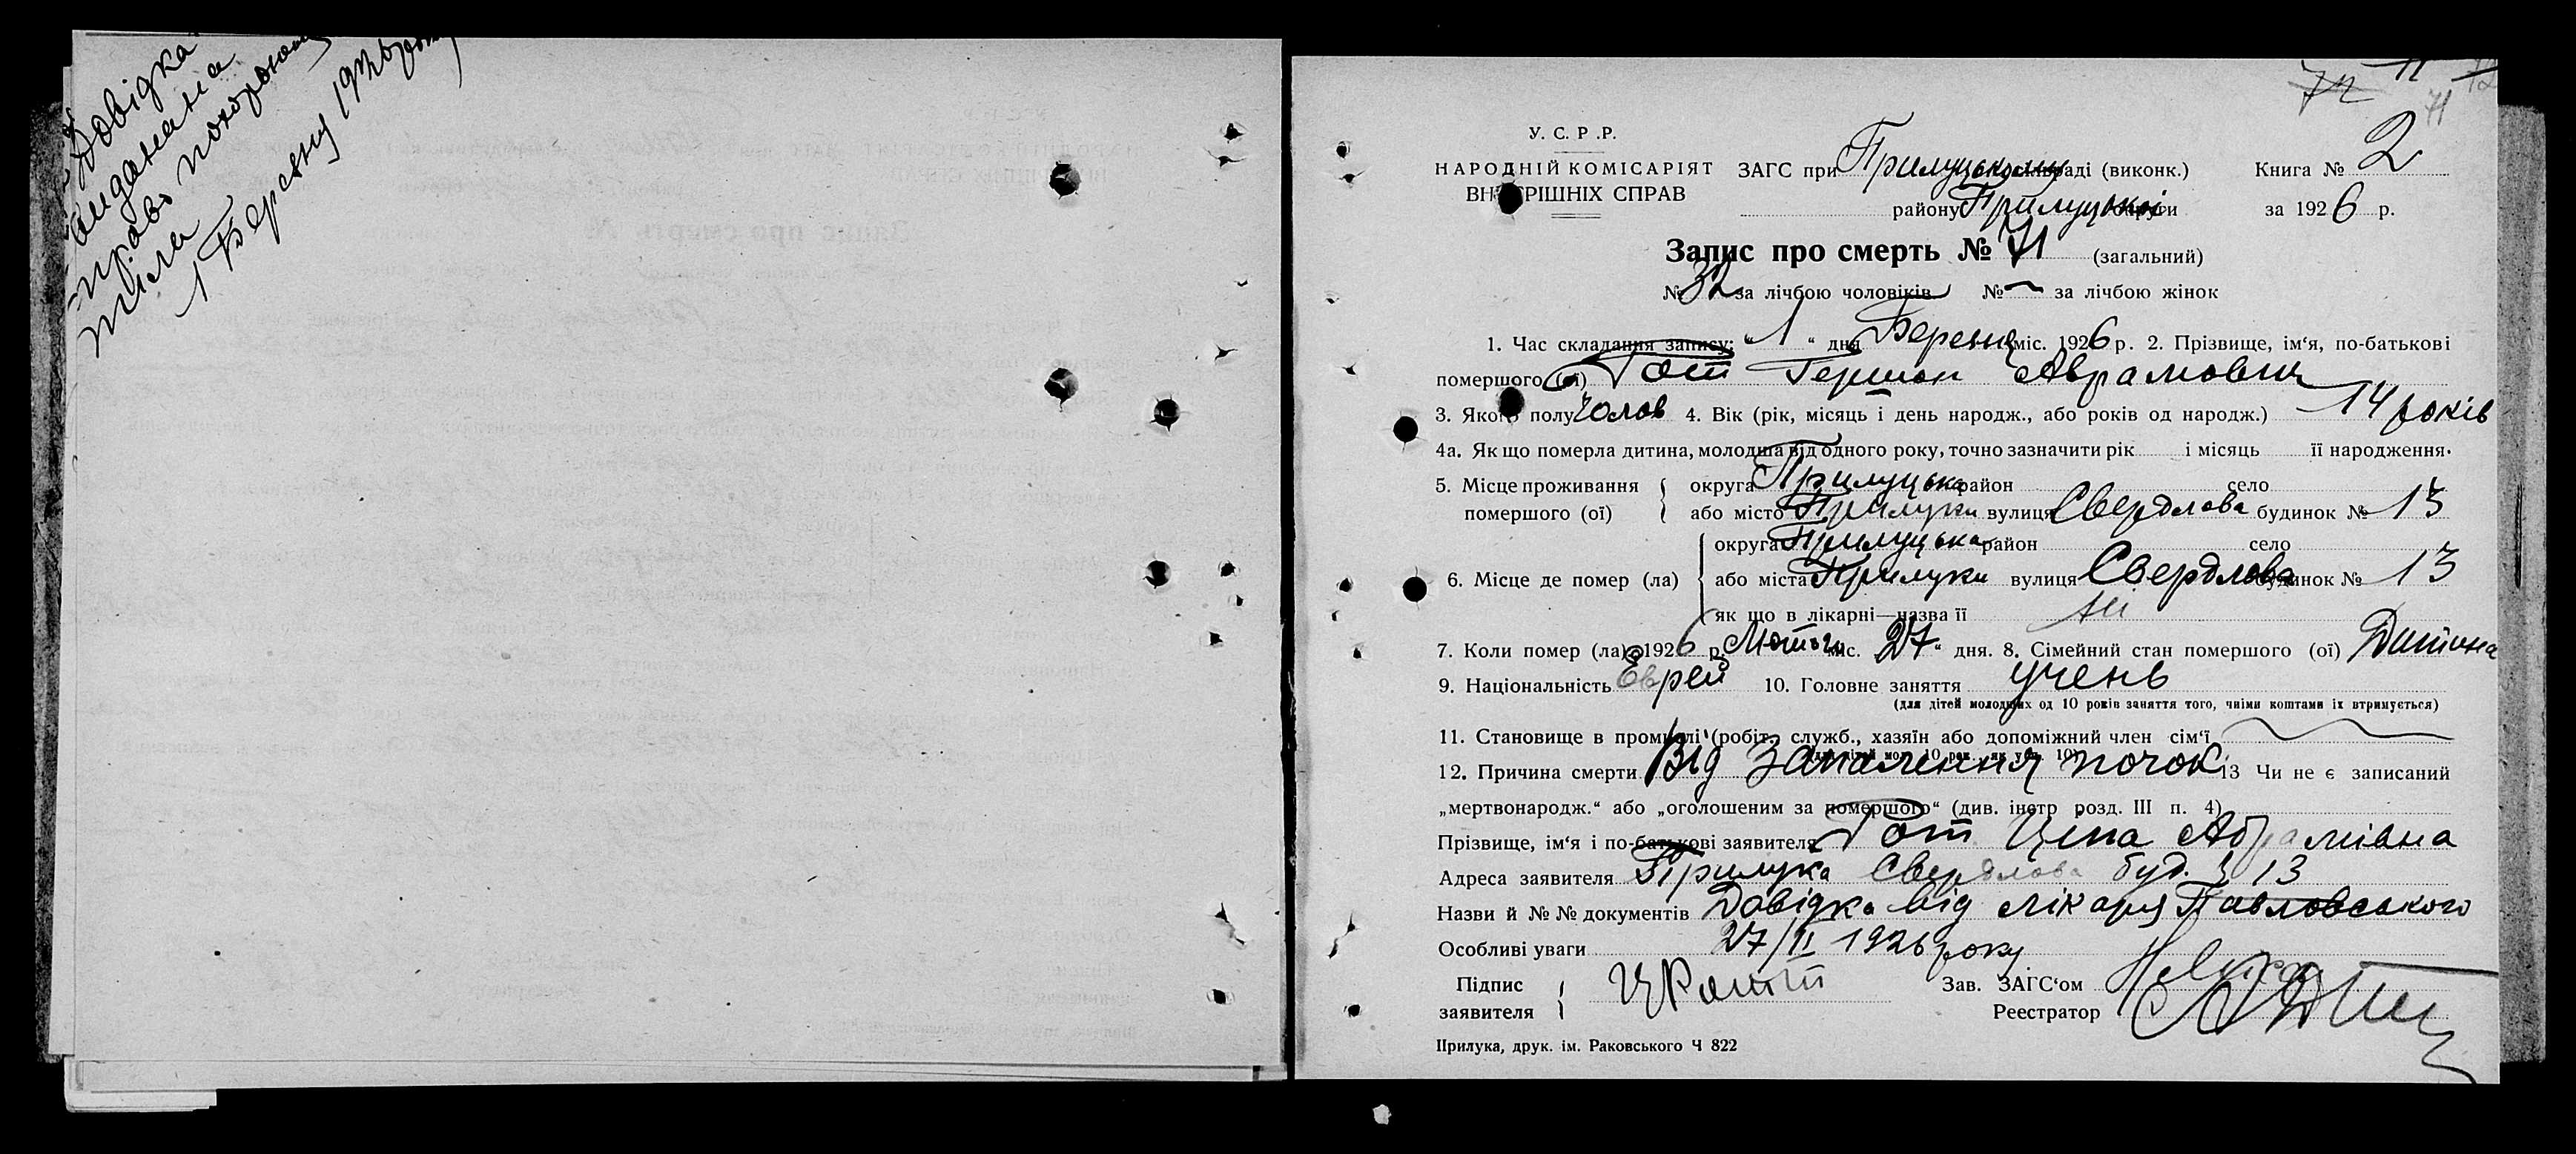 Довідка
видана на
право похорону
тіла
1 Березня 1926 року
72 11 72
71
У. С. Р. Р.
НАРОДНІЙ КОМІСАРІЯТ ЗАГС при Прилуцькому раді (виконк.) Книга № 2
ВНУТРІШНІХ СПРАВ району Прилуцької округи за 1926 р.
Запис про смерть № 71 (загальний)
№ 32 за лічбою чоловіків № — за лічбою жінок
1. Час складання запису: „ 1 “ дня Березня міс. 1926 р. 2. Прізвище, ім‘я, по-батькові
помершого (ої) Рот Гершон Аврамович
3. Якого полу Чолов 4. Вік (рік, місяць і день народж., або років од народж.) 14 років
4а. Як що померла дитина, молодша від одного року, точно зазначити рік і місяць її народження.
5. Місце проживання округа Прилуцька район село
помершого (ої) або місто Прилуки вулиця Свердлова будинок № 13
округа Прилуцька район село
6. Місце де помер (ла) або міста Прилуки вулиця Свердлова будинок № 13
як що в лікарні—назва її Ні
7. Коли помер (ла) 1926 р. Лютого міс. 27 “ дня. 8. Сімейний стан помершого (ої) Дитина
9. Національність Еврей 10. Головне заняття учень
(для дітей молодших од 10 років заняття того, чиїми коштами їх втримується)
11. Становище в промислі (робіт., служб., хазяїн або допоміжний член сім‘ї
12. Причина смерти Від Запалення почок 13 Чи не є записаний
„мертвонародж.“ або „оголошеним за помершого“ (див. інстр розд. III п. 4)
Прізвище, ім‘я і по-батькові заявителя Рот Ципа Абрамівна
Адреса заявителя Прилука Свердлова буд. § 13
Назви й № № документів Довідка від лікаря Павловського
Особливі уваги 27/II 1926 року
Підпис Ц Ротт Зав. ЗАГС‘ом
заявителя Реестратор
Прилука, друк. ім. Раковського Ч 822